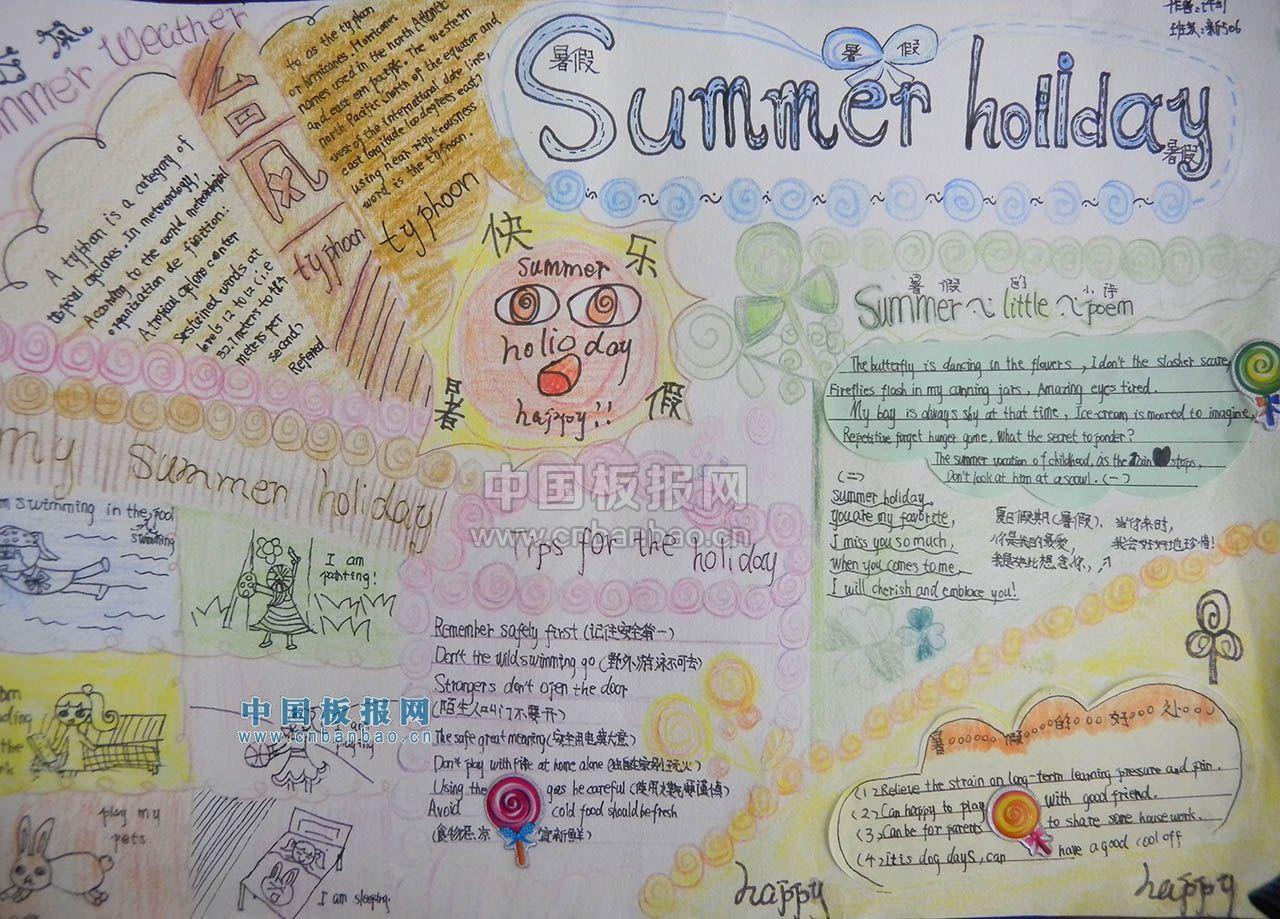 作者:许
班级:新506
暑假
暑 假
Summer holiday
暑假
Summer Weather
台风
台风
typhoon
A typhoon is a category of
topical cyclones. In meteorology,
According to the world meteorological
organization de finition:
A tropical cyclone center
sestrained words at
levels 12 to 13 (i.e
32.7 meters to the
meters per
second)
Referred
to as the typhoon
or hrricanes. Hurricanes
names used in the north Atlantic
and east em pacific. The western
north Pacific north of the equator and
west of the international date line,
east longitude 100 degrees east)
using near righteousness
word is the typhoon.
typhoon
快乐
summer
holioday
happy!!
暑假
暑假 的 小诗
Summer little poem
The butterfly is dancing in the flowers, I don't the slasher scare,
Fireflies flash in my canning jars, Amazing eyes tired.
My bay is always shy at that time, Ice-cream is moored to imagine,
Repetitive forget hunger game, What the secret to ponder?
The summer vacation of childhood, as the rain stops,
Don't look at him at a scowl. (一)
(二)
summer holiday,
you are my favorite,
I miss you so much,
when you comes to me,
I will cherish and embrace you!
夏日假期(暑假),
你是我的最爱,
我是如此想念你,
当你来时,
我会好好地珍惜!
my summer holiday
swimming in the pool
swimming
I am
painting!
the
play my
pets
I am sleeping.
Tips for the holiday
Remember safely first (记住安全第一)
Don't the wild swimming go (野外游泳不可去)
Strangers don't open the door
(陌生人叫门不要开)
The safe great meaning (安全用电莫大意)
Don't play with fire at home alone (独自在家别玩火)
Using the gas be careful (使用煤气要谨慎)
Avoid cold food should be fresh
(食物忌凉宜新鲜)
暑假的好处
(1) Relieve the strain on long-term learning pressure and pain.
(2) Can happy to play with good friend.
(3) Can be for parents to share some housework.
(4) it is dog days, can have a good cool off
happy
happy
中国板报网
www.cnbanbao.cn
中国板报网
www.cnbanbao.cn